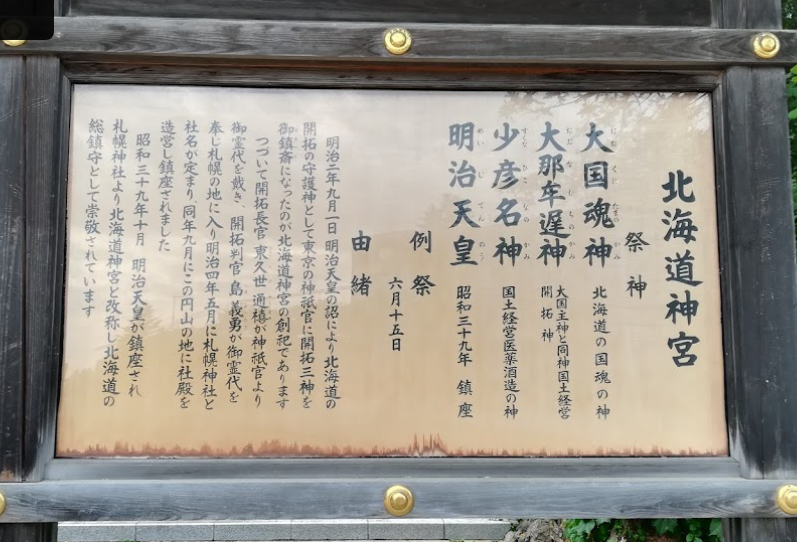 北海道神宮
祭神
大国魂神 北海道の国魂の神
大那牟遅神 大国主神と同神国土経営
開拓神
少彦名神 国土経営医薬酒造の神
明治天皇 昭和三十九年 鎮座
例祭
六月十五日
由緒
明治二年九月一日 明治天皇の詔により北海道の
開拓の守護神として東京の神祇官に開拓三神を
御鎮斎になったのが北海道神宮の創祀であります
つづいて開拓長官 東久世 通禧が神祇官より
御霊代を戴き 開拓判官 島 義勇が御霊代を
奉じ札幌の地に入り明治四年五月に札幌神社と
社名が定まり同年九月にこの円山の地に社殿を
造営し鎮座されました
昭和三十九年十月 明治天皇が鎮座され
札幌神社より北海道神宮と改称し北海道の
総鎮守として崇敬されています